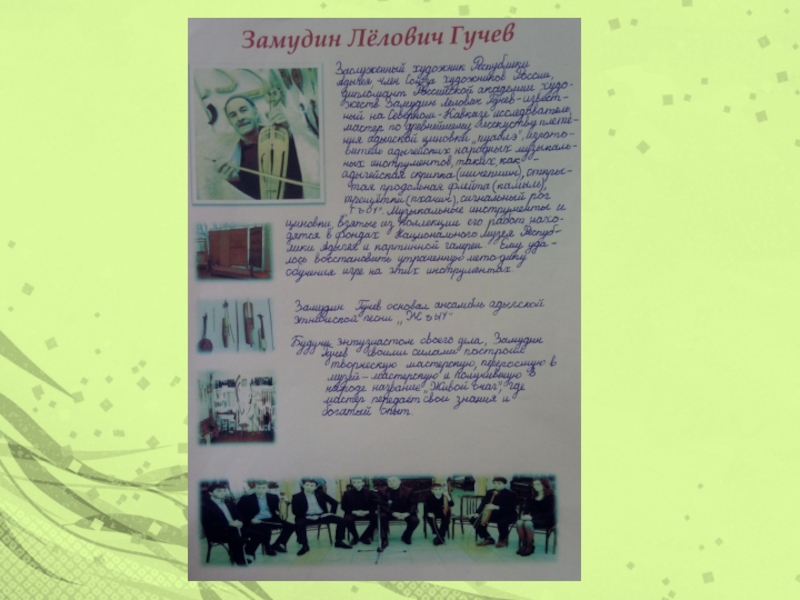 Замудин Лёлович Гучев
Заслуженный художник Республики
Адыгея, член Союза художников России,
дипломант Российской академии худо-
жеств Замудин Лёлович Гучев - извест-
ный на Северном - Кавказе исследователь,
мастер по древнейшему искусству плете-
ния адыгской циновки „пуаблэ", изгото-
витель адыгейских народных музыкаль-
ных инструментов, таких, как -
адыгейская скрипка (шичепшин), откры-
тая продольная флейта (камыль),
трещётки (пхачич), сигнальный рог
Музыкальные инструменты и
циновки, взятые из коллекции его работ нахо-
дятся в фондах Национального музея Респуб-
лики Адыгея и картинной галереи Ему уда-
лось восстановить утраченную методику
обучения игре на этих инструментах
Замудин Гучев основал ансамбль адыгской
этнической песни „Жъыу"
Будучи энтузиастом своего дела, Замудин
Гучев своими силами построил
творческую мастерскую, переросшую в
музей - мастерскую и получившую в
народе название „Живой очаг", где
мастер передаёт свои знания и
богатый опыт